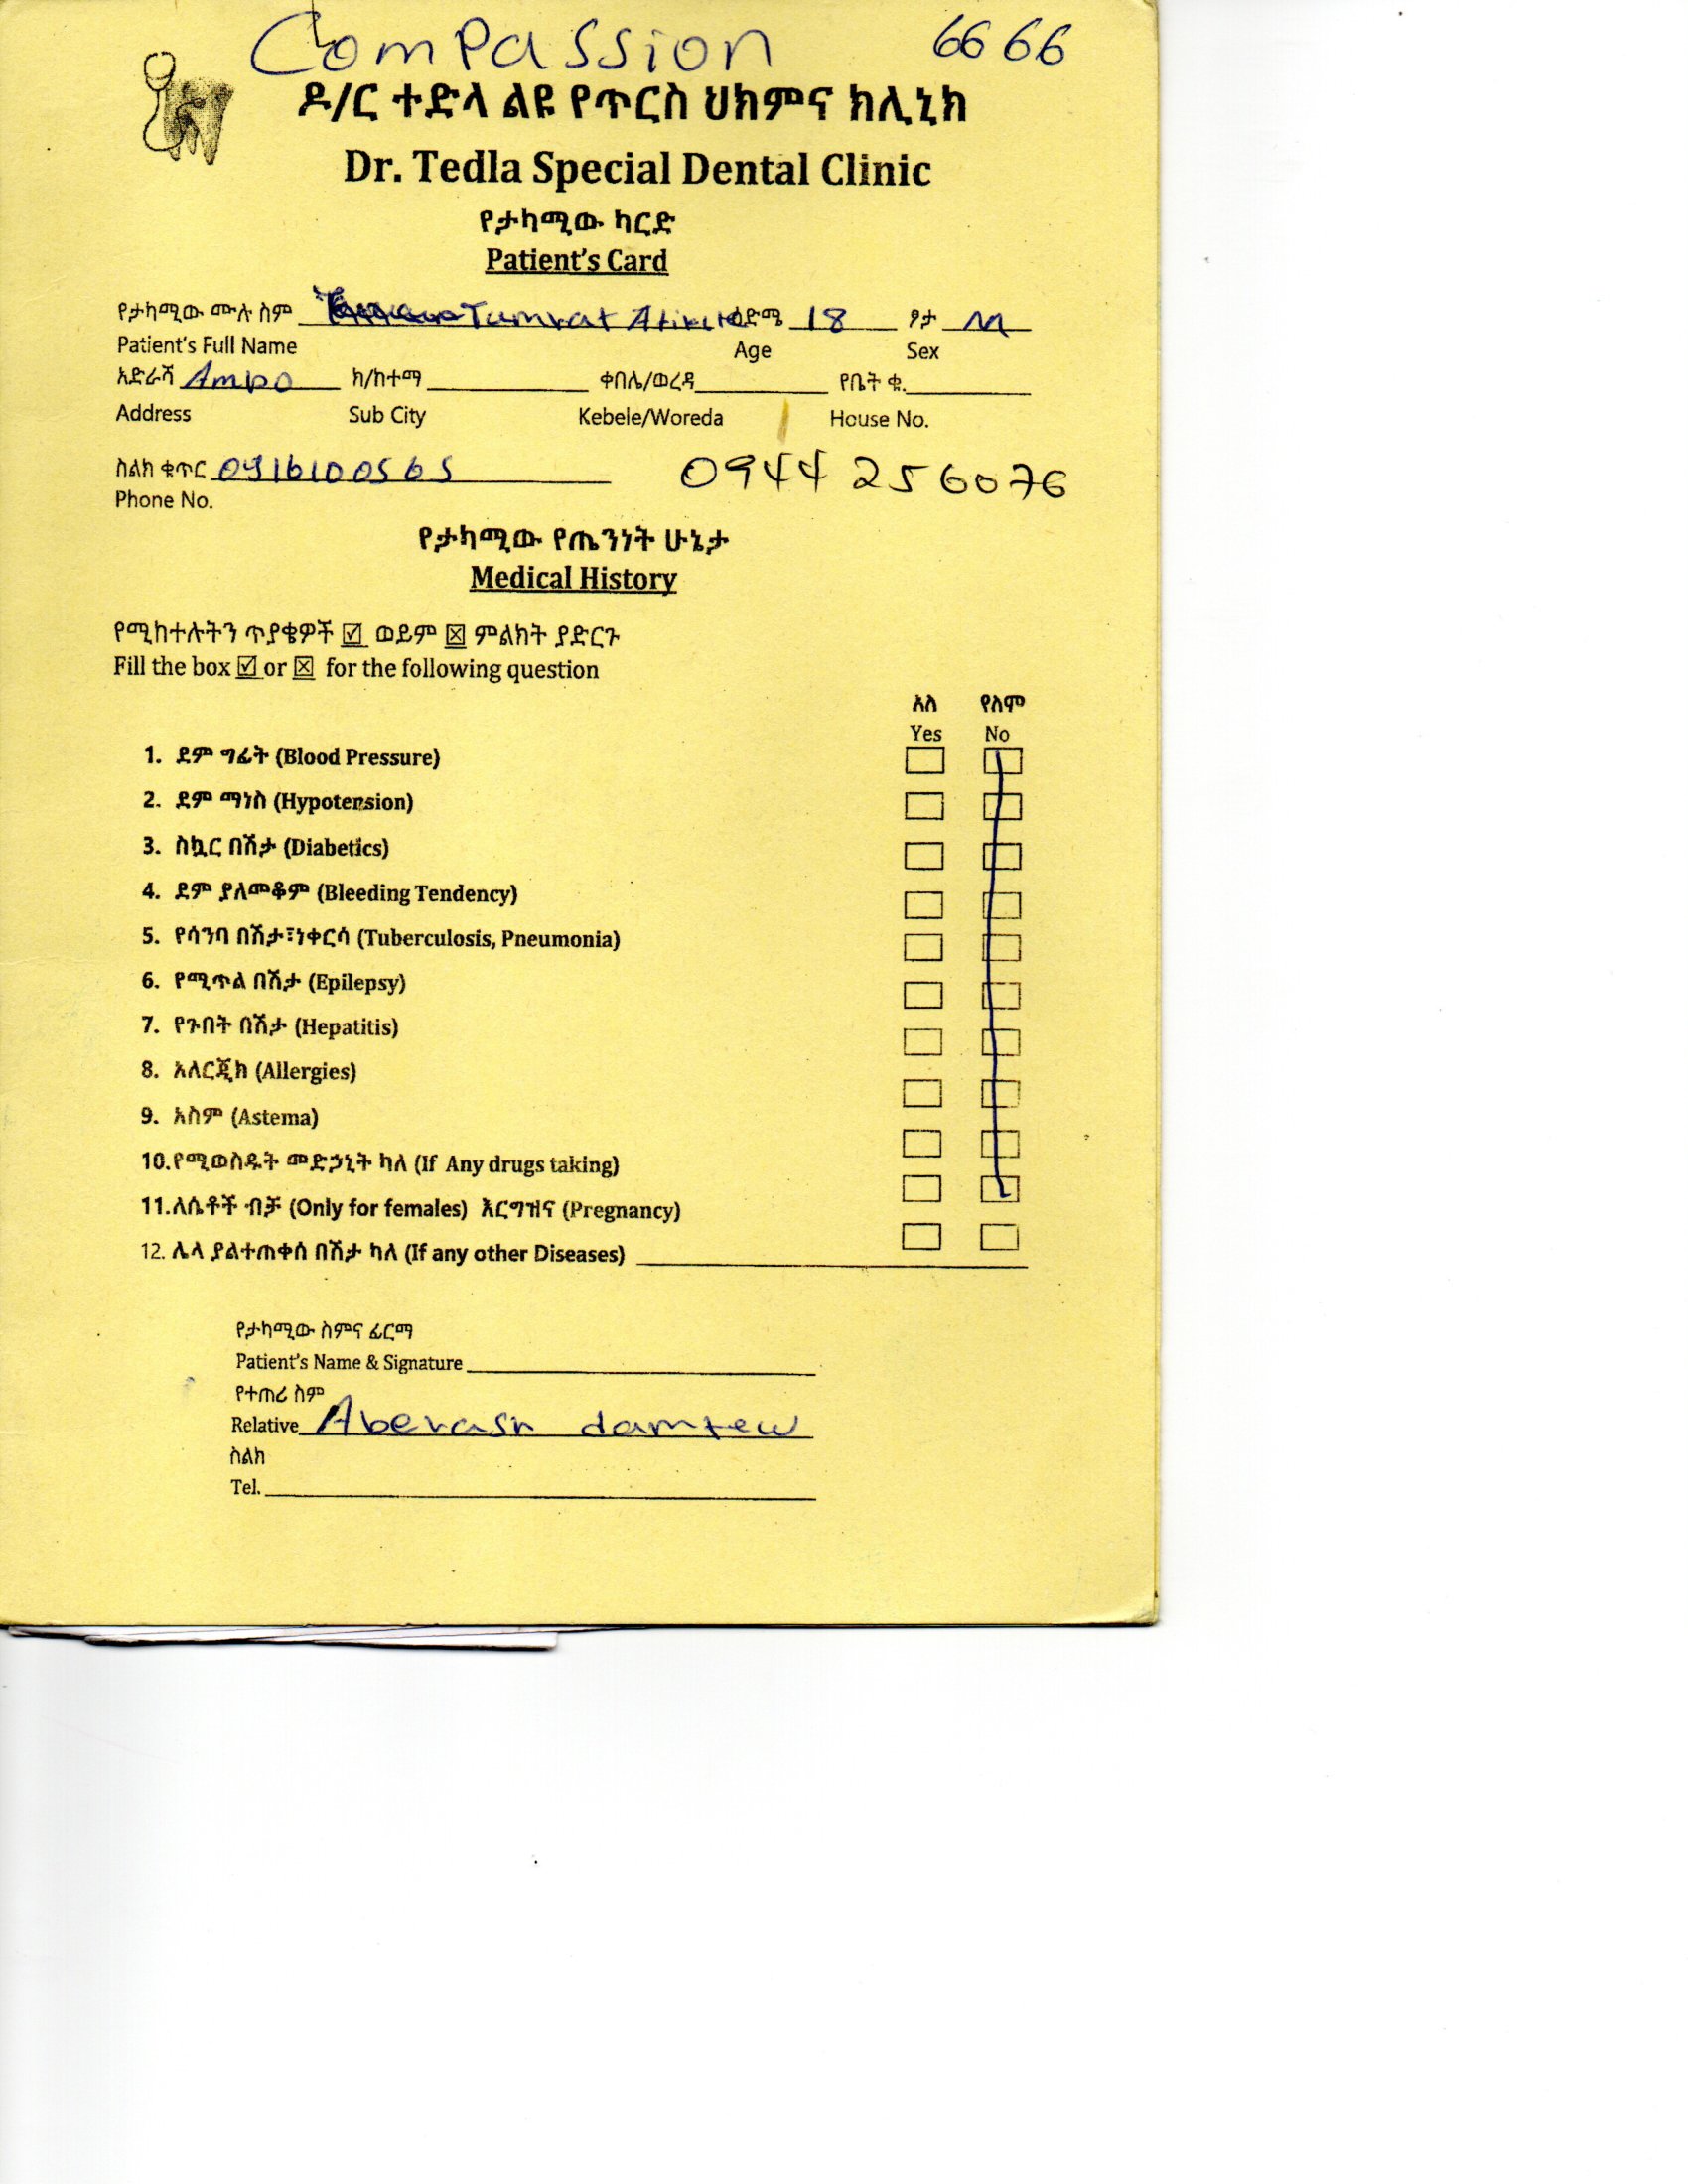 Compassion 6666
ዶ/ር ተድላ ልዩ የጥርስ ህክምና ክሊኒክ
Dr. Tedla Special Dental Clinic
የታካሚው ካርድ
Patient's Card
የታካሚው ሙሉ ስም Tamrat ዕድሜ 18 ፆታ M
Patient's Full Name Age Sex
አድራሻ Ambo ክ/ከተማ ቀበሌ/ወረዳ የቤት ቁ.
Address Sub City Kebele/Woreda House No.
ስልክ ቁጥር 0944 256076
Phone No.
የታካሚው የጤንነት ሁኔታ
Medical History
የሚከተሉትን ጥያቄዎች ☑ ወይም ☒ ምልክት ያድርጉ
Fill the box ☑ or ☒ for the following question
አለ የለም
Yes No
1. ደም ግፊት (Blood Pressure)
2. ደም ማነስ (Hypotension)
3. ስኳር በሽታ (Diabetics)
4. ደም ያለመቆም (Bleeding Tendency)
5. የሳንባ በሽታ፣ነቀርሳ (Tuberculosis, Pneumonia)
6. የሚጥል በሽታ (Epilepsy)
7. የጉበት በሽታ (Hepatitis)
8. አለርጂክ (Allergies)
9. አስም (Astema)
10.የሚወስዱት መድኃኒት ካለ (If Any drugs taking)
11.ለሴቶች ብቻ (Only for females) እርግዝና (Pregnancy)
12. ሌላ ያልተጠቀሰ በሽታ ካለ (If any other Diseases)
የታካሚው ስምና ፊርማ
Patient's Name & Signature
የተጠሪ ስም
Relative Aberash damtew
ስልክ
Tel.